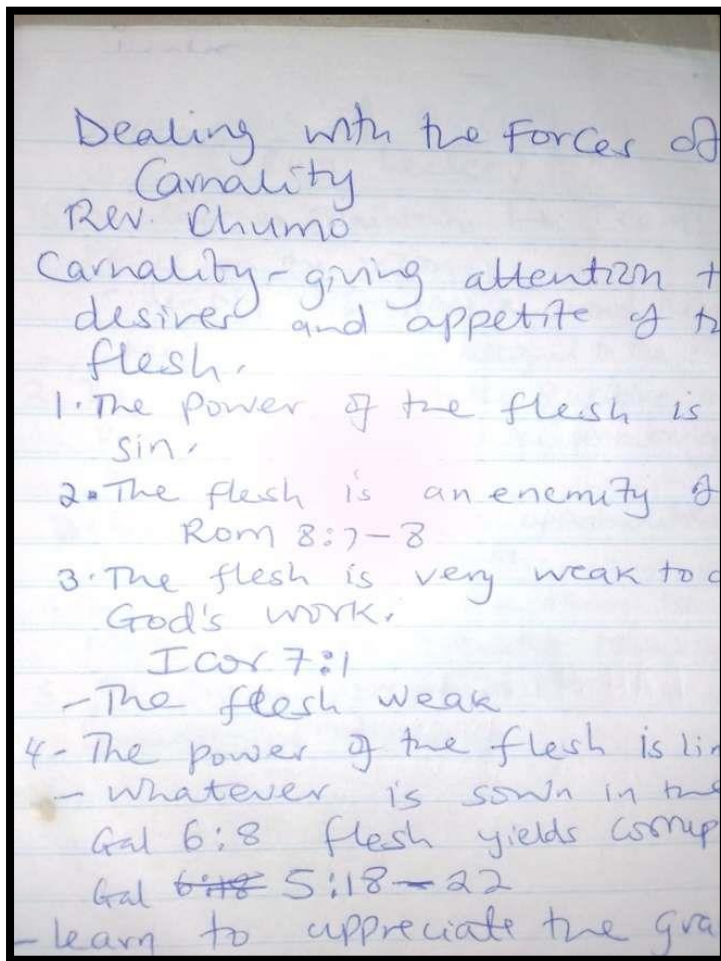 Dealing with the Forces of
Carnality
Rev. Chumo
Carnality - giving attention t
desires and appetite of t
flesh.
1. The power of the flesh is
sin.
2. The flesh is an enemity of
Rom 8:7-8
3. The flesh is very weak to d
God's work.
I cor 7:1
- The flesh weak
4 - The power of the flesh is li
- whatever is sown in the
Gal 6:8 flesh yields corrup
Gal 6:18 5:18-22
- learn to appreciate the gra